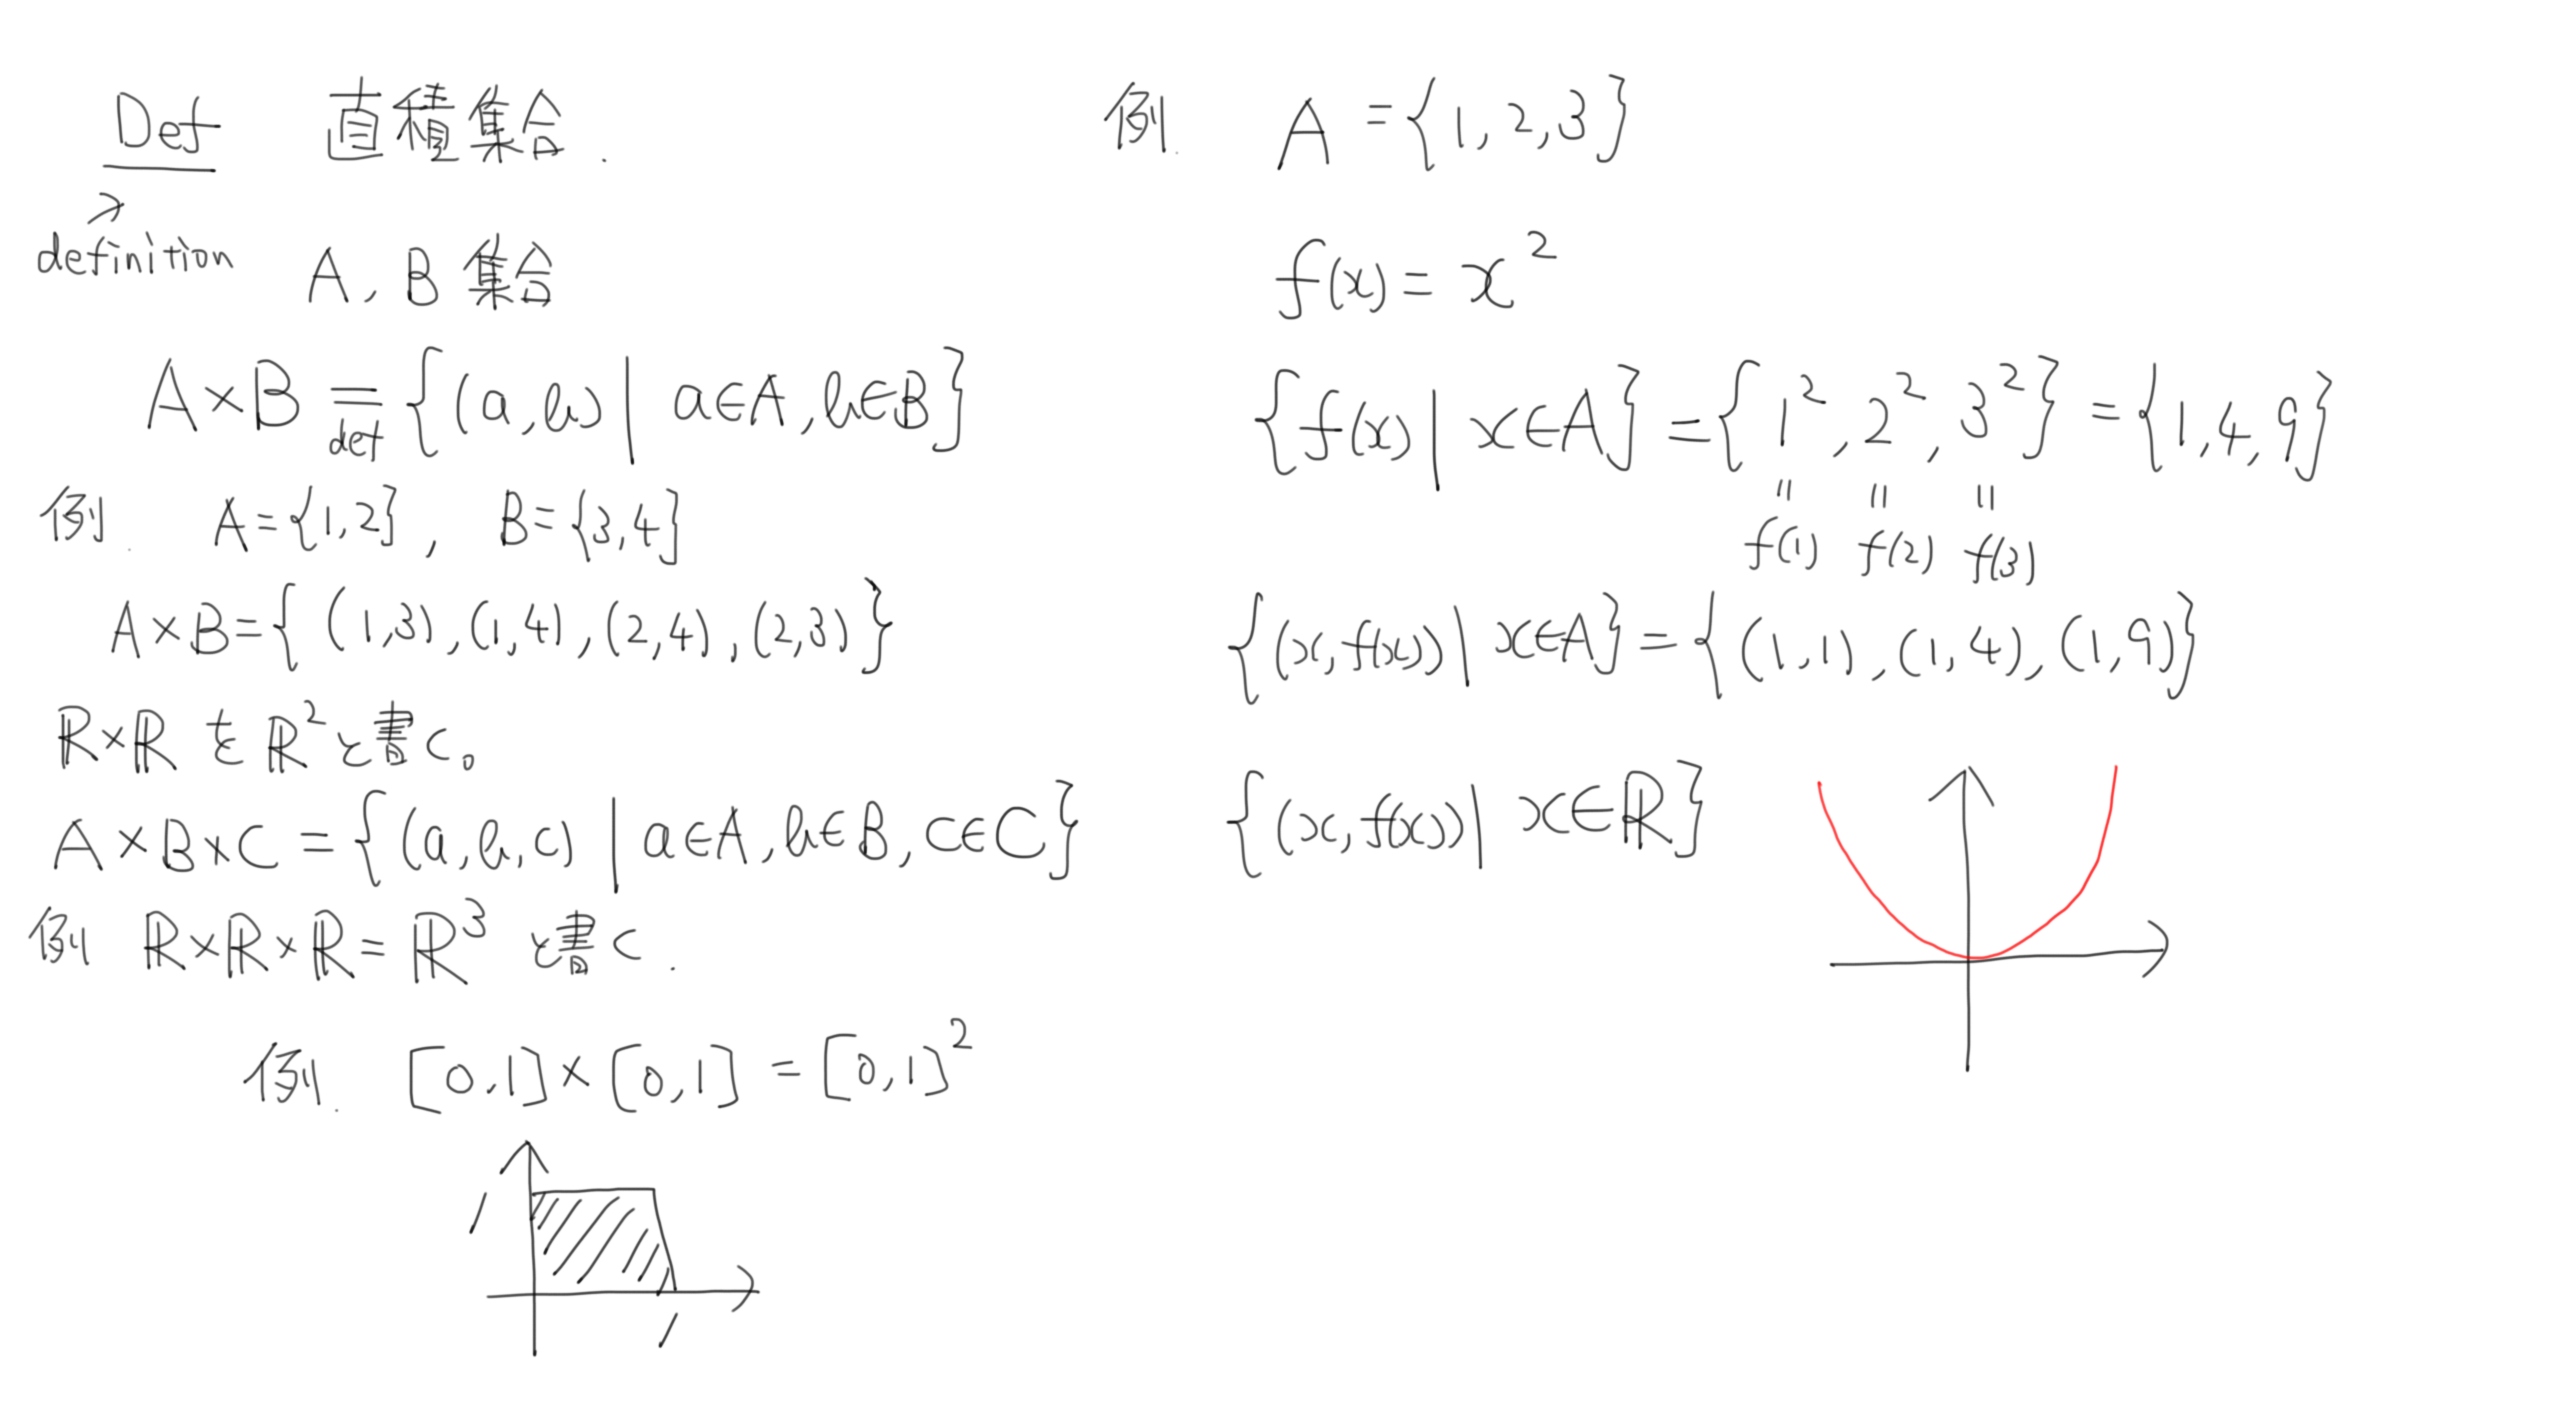 Def 直積集合.
definition
A, B 集合
A×B =def {(a,b) | a∈A, b∈B}
例. A={1,2}, B={3,4}
A×B={(1,3),(1,4),(2,4),(2,3)}
ℝ×ℝ を ℝ² と書く。
A×B×C={(a,b,c) | a∈A, b∈B, c∈C}
例 ℝ×ℝ×ℝ=ℝ³ と書く.
例. [0,1]×[0,1]=[0,1]²
1
1
例. A={1,2,3}
f(x)=x²
{f(x) | x∈A}={1²,2²,3²}={1,4,9}
= = =
f(1) f(2) f(3)
{(x,f(x)) | x∈A}={(1,1),(1,4),(1,9)}
{(x,f(x)) | x∈ℝ}